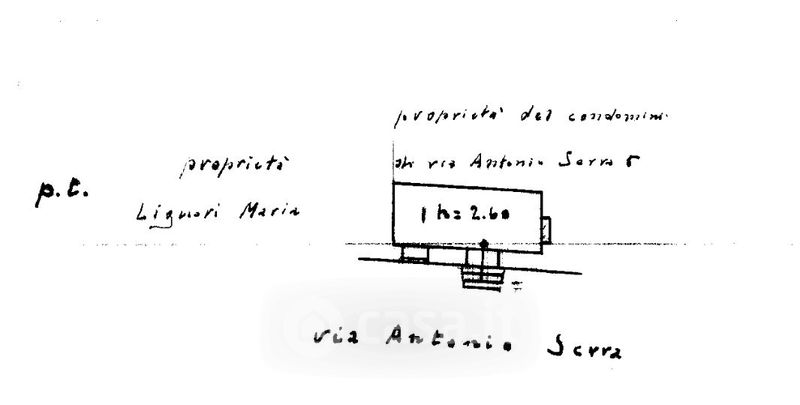 proprietà del condominio
di via Antonio Serra 5
proprietà
p.t.
Liguori Maria
1 h= 2.60
casa.it
via Antonio Serra